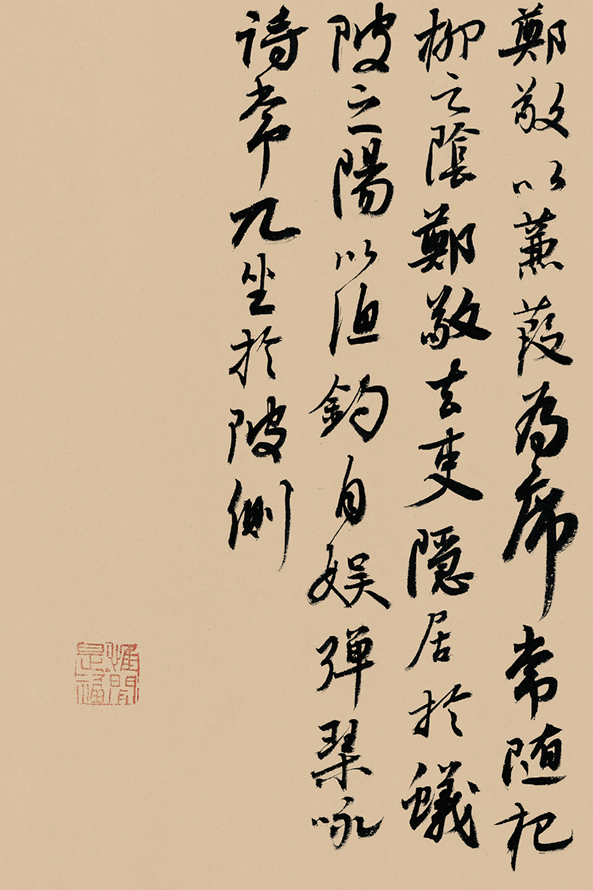 鄭敬以蒹葭為席常随杞
柳之陰鄭敬去吏隱居於蟻
陂之陽以漁釣自娛彈琴咏
詩常兀坐於陂側
惟閒是福